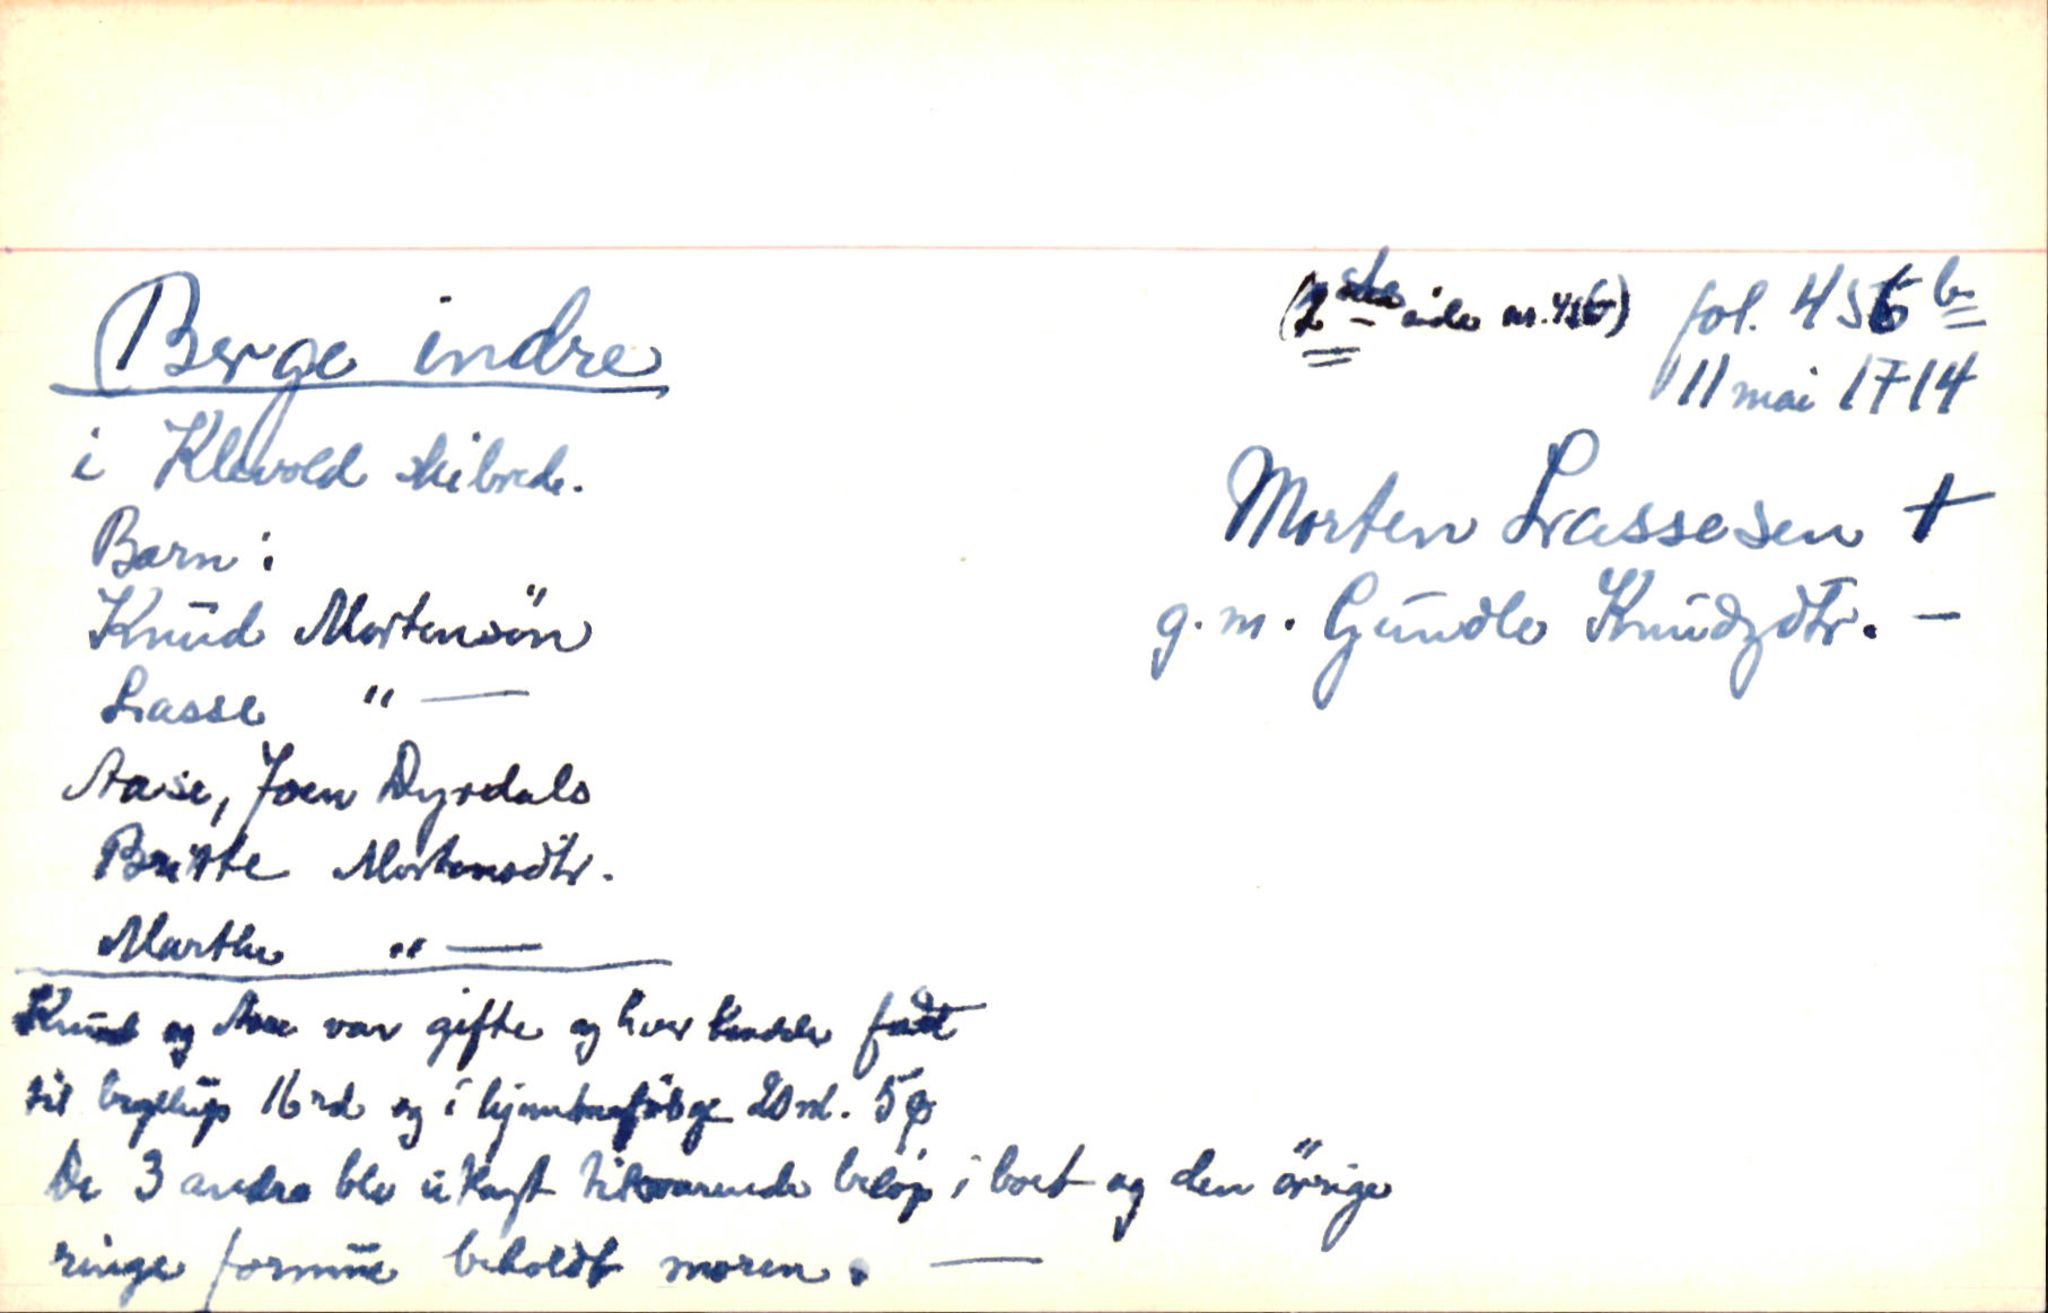 Berge indre
(2ste side nr. 456) fol. 456 b
11 mai 1714
i Klevold skibrede.
Morten Lassesen †
g. m. Gundle Knudzdtr. —
Barn:
Knud Mortensön
Lasse " —
Aase, Joen Dyrdals
Britte Mortensdtr.
Marthe " —
Knud og Aase var gifte og hver hadde faat
til bryllup 16 rd og i hjemmefölge 20 rd. 5
De 3 andre blev utlagt tilsvarende belöp i boet og den örige
ringe formue beholdt moren. —